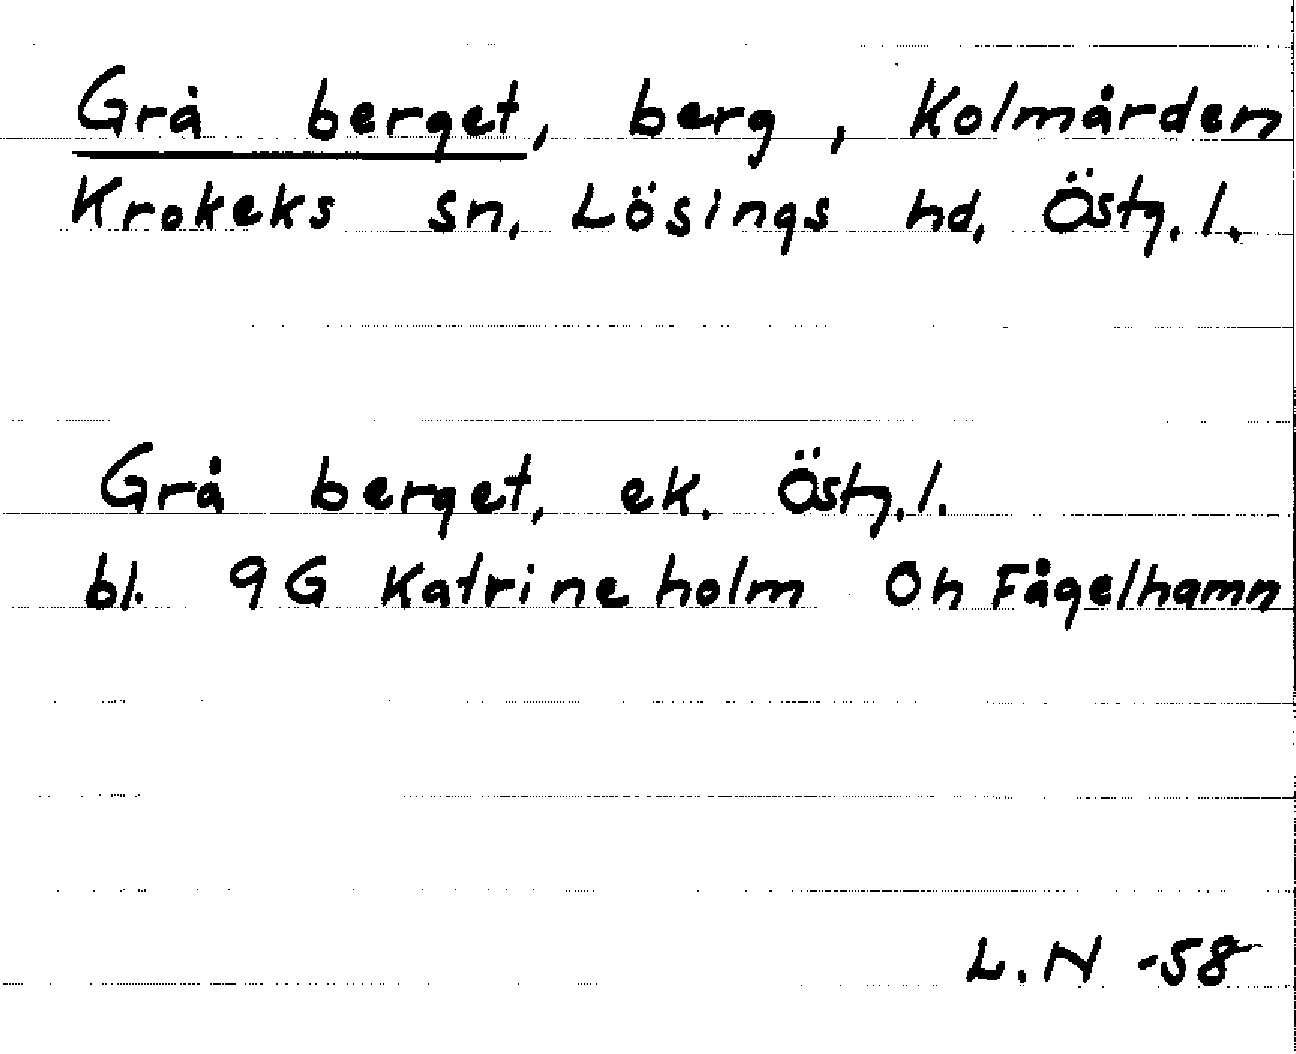 Grå berget, berg, Kolmården
Krokeks sn, Lösings hd, Östg. l.
Grå berget, ek. Östg. l.
bl. 9G Katrineholm 0h Fågelhamn
L.N -58